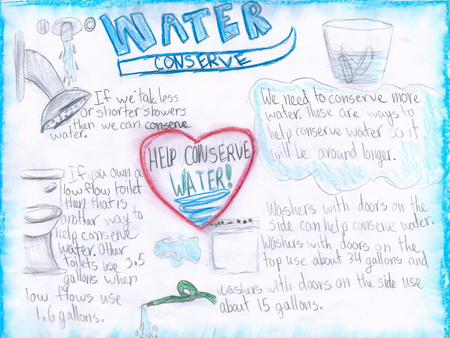 WATER
CONSERVE
If we take less
or shorter showers
then we can conserve
water.
We need to conserve more
water. These are ways to
help conserve water so it
will be around longer.
HELP CONSERVE
WATER!
If you own a
low flow toilet
then that is
another way to
help conserve
water. Other
toilets use 3.5
gallons when
low flows use
1.6 gallons.
Washers with doors on the
side can help conserve water.
Washers with doors on the
top use about 34 gallons and
washers with doors on the side use
about 15 gallons.